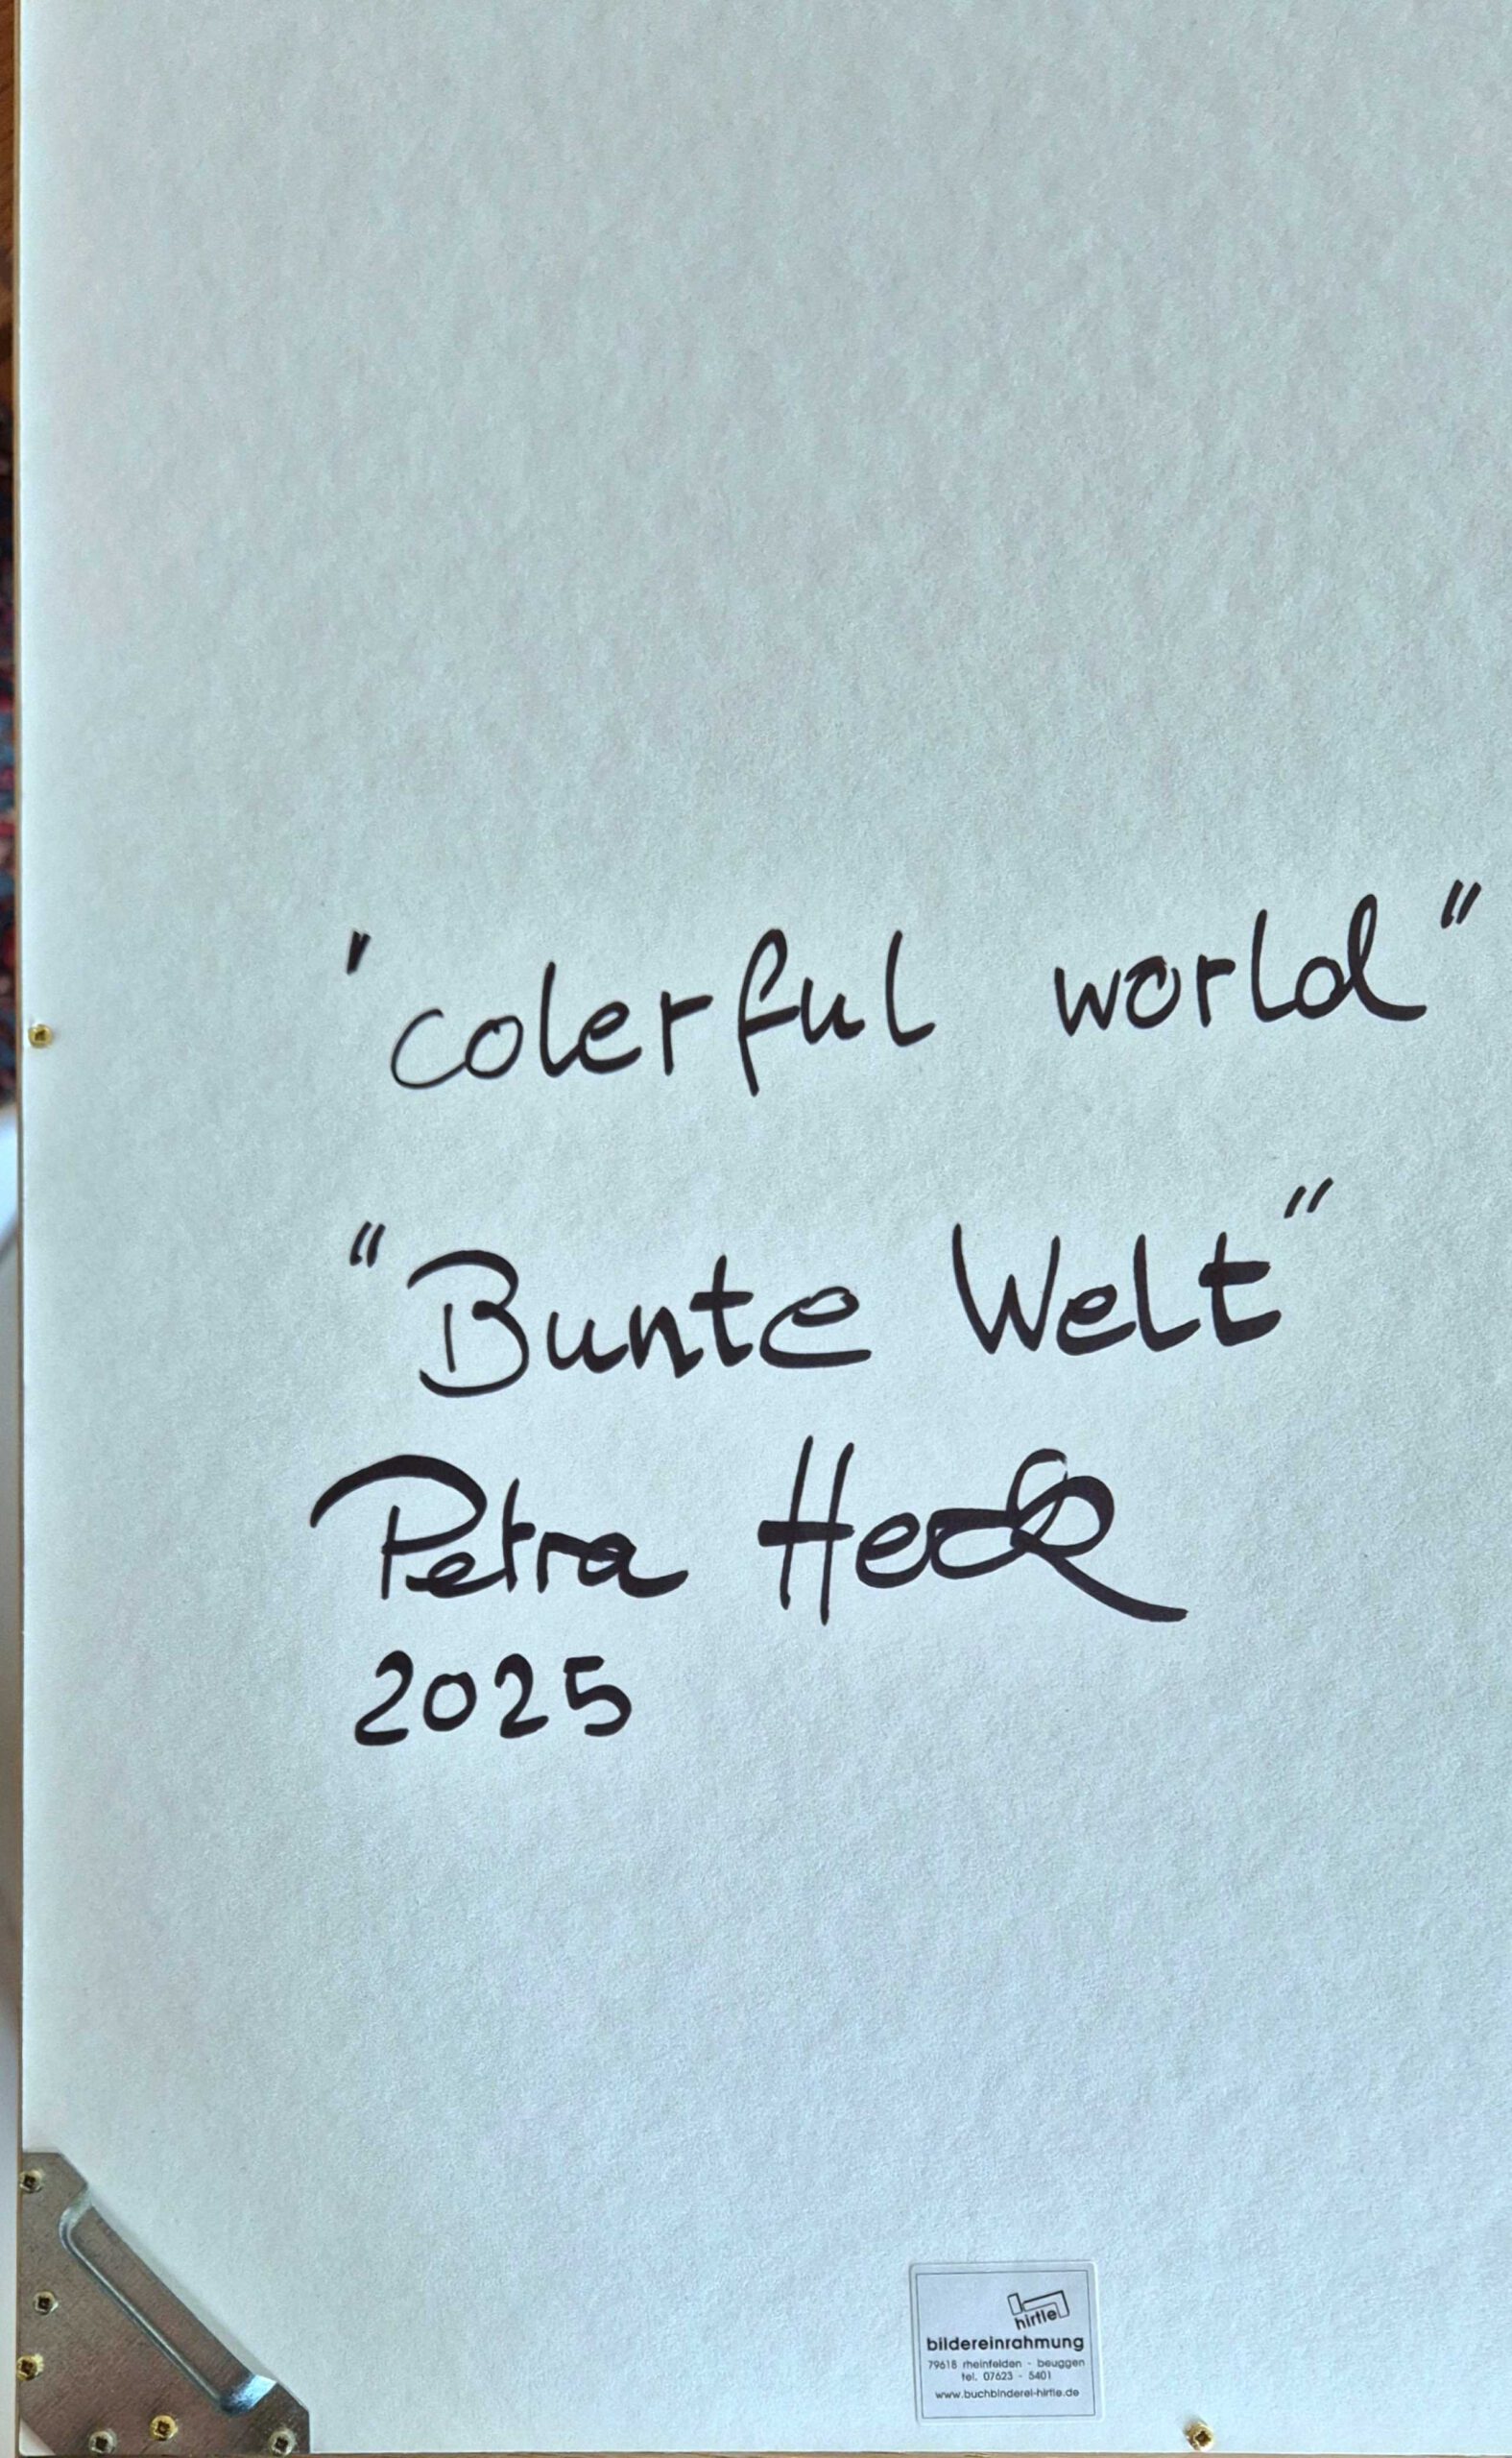 "colerful world"
"Bunte Welt"
Petra Heck
2025
hirtle
bildereinrahmung
79618 rheinfelden - beuggen
tel. 07623 - 5401
www.buchbinderei-hirtle.de